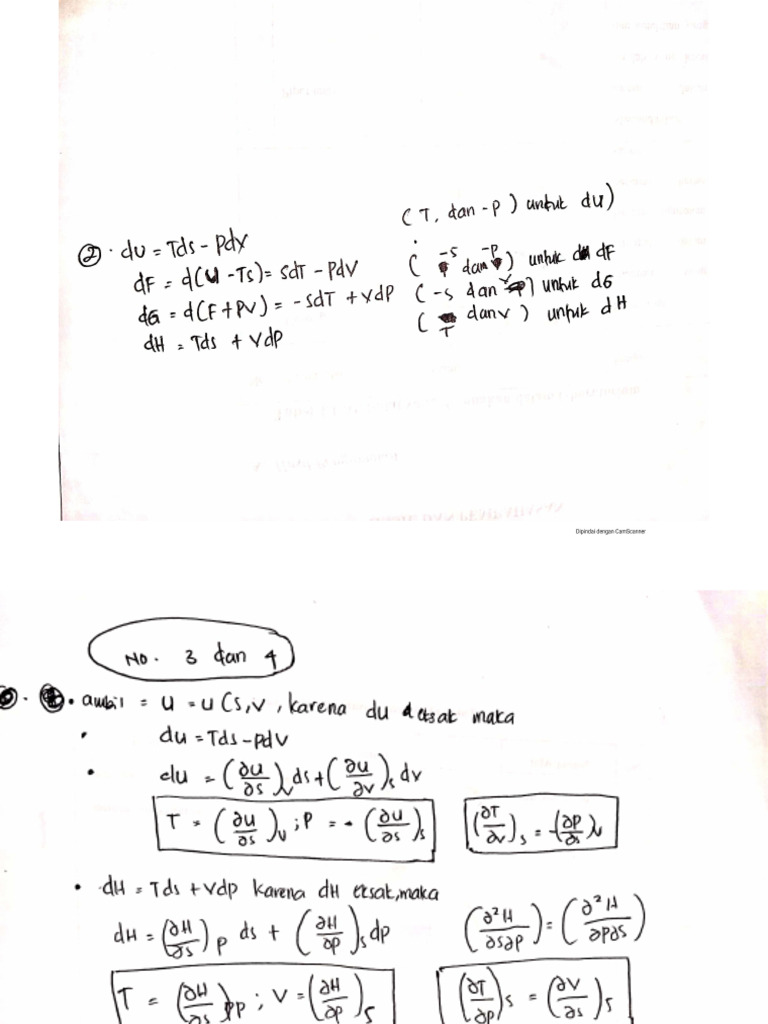 (T, dan -P) untuk du)
② · du = Tds - pdv
( -s dan -P ) untuk dF
dF = d(U - Ts) = SdT - PdV
(-s dan v) untuk dG
dG = d(F + PV) = -sdT + VdP
( T dan v ) untuk dH
dH = Tds + VdP
Dipindai dengan CamScanner
No. 3 dan 4
· ambil = u = u(s,v, karena du etsak maka
· du = Tds - PdV
· du = (∂u/∂s)v ds + (∂u/∂v)s dv
T = (∂u/∂s)v ; P = - (∂u/∂s)s (∂T/∂v)s = -(∂P/∂s)v
· dH = Tds + Vdp karena dH etsak, maka
dH = (∂H/∂s)p ds + (∂H/∂p)s dp (∂²H/∂s∂p) = (∂²H/∂p∂s)
T = (∂H/∂s)pp ; V = (∂H/∂p)s (∂T/∂p)s = (∂V/∂s)s